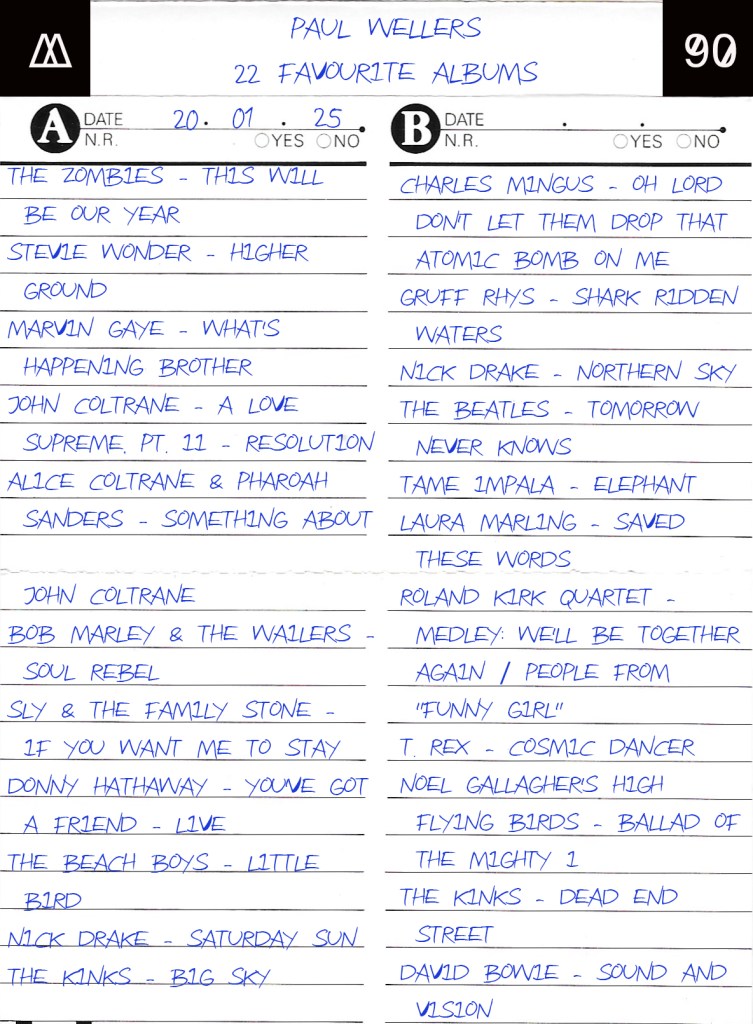 PAUL WELLERS
22 FAVOURITE ALBUMS
90
A DATE 20. 01. 25
N.R. YES NO
THE ZOMBIES - THIS WILL
BE OUR YEAR
STEVIE WONDER - HIGHER
GROUND
MARVIN GAYE - WHAT'S
HAPPENING BROTHER
JOHN COLTRANE - A LOVE
SUPREME, PT. 11 - RESOLUTION
ALICE COLTRANE & PHAROAH
SANDERS - SOMETHING ABOUT
JOHN COLTRANE
BOB MARLEY & THE WAILERS -
SOUL REBEL
SLY & THE FAMILY STONE -
IF YOU WANT ME TO STAY
DONNY HATHAWAY - YOUVE GOT
A FRIEND - LIVE
THE BEACH BOYS - LITTLE
BIRD
NICK DRAKE - SATURDAY SUN
THE KINKS - BIG SKY
B DATE . .
N.R. YES NO
CHARLES MINGUS - OH LORD
DONT LET THEM DROP THAT
ATOMIC BOMB ON ME
GRUFF RHYS - SHARK RIDDEN
WATERS
NICK DRAKE - NORTHERN SKY
THE BEATLES - TOMORROW
NEVER KNOWS
TAME IMPALA - ELEPHANT
LAURA MARLING - SAVED
THESE WORDS
ROLAND KIRK QUARTET -
MEDLEY: WE'LL BE TOGETHER
AGAIN / PEOPLE FROM
"FUNNY GIRL"
T. REX - COSMIC DANCER
NOEL GALLAGHER'S HIGH
FLYING BIRDS - BALLAD OF
THE MIGHTY 1
THE KINKS - DEAD END
STREET
DAVID BOWIE - SOUND AND
VISION